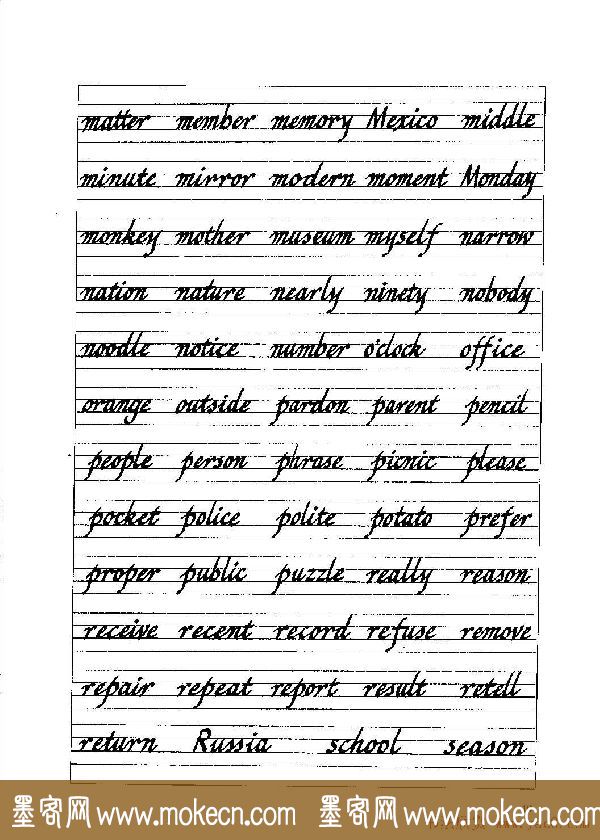 matter member memory Mexico middle
minute mirror modern moment Monday
monkey mother museum myself narrow
nation nature nearly ninety nobody
noodle notice number o'clock office
orange outside pardon parent pencil
people person phrase picnic please
pocket police polite potato prefer
proper public puzzle really reason
receive recent record refuse remove
repair repeat report result retell
return Russia school season
墨客网 www.mokecn.com 墨客网 www.mokecn.com